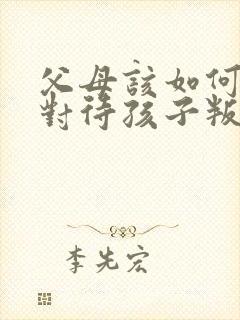 父母該如何
對待孩子叛
李先宏